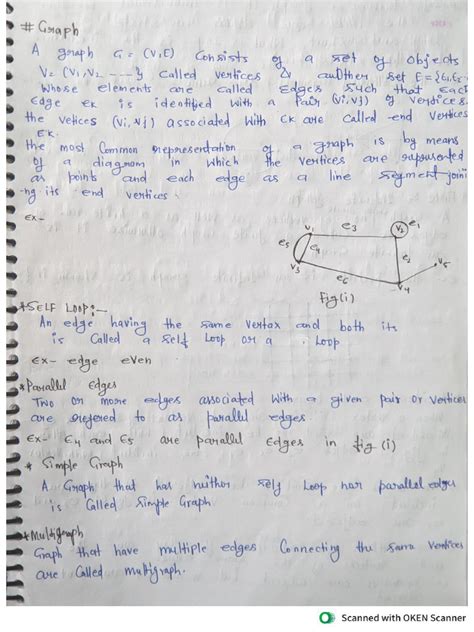 # Graph
A graph G = (V,E) Consists of a set of objects
V = (V1,V2 ----} called vertices & auother set E = {E1,E2
whose elements are called Edges such that each
Edge ek is identified with a pair (vi,vj) of vertices
the vetices (vi,vj) associated with ek are called end vertices
Ek.
the most common representation of a graph is by means
of a diagram in which the vertices are represented
as points and each edge as a line segment joini
-ng its end vertices.
ex-
V1 e3 V2 e1
e5 e4 e2 V5
V3 e6 V4
Fig(i)
*SELF LOOP:-
An edge having the same vertex and both its
is Called a self Loop or a Loop
Ex- edge even
*Parallel Edges
Two or more edges associated with a given pair or vertices
are refered to as parallel edges.
Ex- E4 and E5 are parallel Edges in fig (i)
* Simple Graph
A Graph that has neither self Loop nor parallel edges
is Called Simple Graph.
*Multigraph
Graph that have multiple edges Connecting the same vertices
are Called multigraph.
Scanned with OKEN Scanner